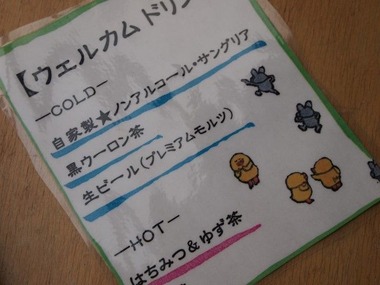 【ウェルカムドリン
―COLD―
自家製★ノンアルコール・サングリア
黒ウーロン茶
生ビール(プレミアムモルツ)
―HOT―
はちみつ&ゆず茶